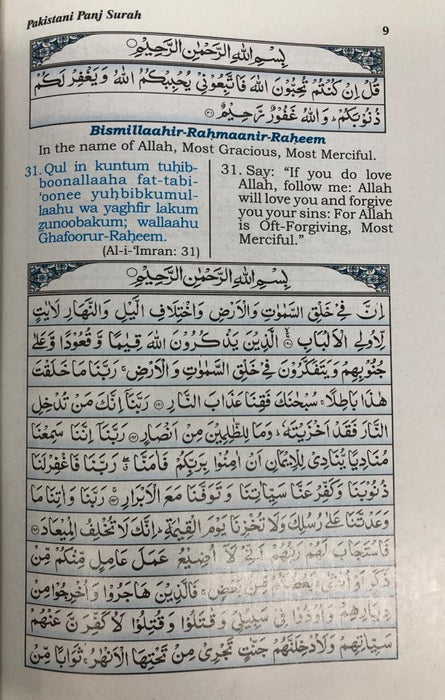 Pakistani Panj Surah
9
بِسْمِ اللّٰهِ الرَّحْمٰنِ الرَّحِيْمِ
قُلْ اِنْ كُنْتُمْ تُحِبُّوْنَ اللّٰهَ فَاتَّبِعُوْنِيْ يُحْبِبْكُمُ اللّٰهُ وَيَغْفِرْ لَكُمْ
ذُنُوْبَكُمْ ؕ وَاللّٰهُ غَفُوْرٌ رَّحِيْمٌ ﴿۳۱﴾
Bismillaahir-Raḥmaanir-Raḥeem
In the name of Allah, Most Gracious, Most Merciful.
31. Qul in kuntum tuḥib-
boonallaaha fat-tabi-
'oonee yuḥbibkumul-
laahu wa yaghfir lakum
ẓunoobakum; wallaahu
Ghafoorur-Raḥeem.
(Al-i-'Imran: 31)
31. Say: "If you do love
Allah, follow me: Allah
will love you and forgive
you your sins: For Allah
is Oft-Forgiving, Most
Merciful."
بِسْمِ اللّٰهِ الرَّحْمٰنِ الرَّحِيْمِ
اِنَّ فِيْ خَلْقِ السَّمٰوٰتِ وَالْاَرْضِ وَاخْتِلَافِ الَّيْلِ وَالنَّهَارِ لَاٰيٰتٍ
لِّاُولِي الْاَلْبَابِ ﴿۱۹۰﴾ الَّذِيْنَ يَذْكُرُوْنَ اللّٰهَ قِيٰمًا وَّقُعُوْدًا وَّعَلٰى
جُنُوْبِهِمْ وَيَتَفَكَّرُوْنَ فِيْ خَلْقِ السَّمٰوٰتِ وَالْاَرْضِ ۚ رَبَّنَا مَا خَلَقْتَ
هٰذَا بَاطِلًا ۚ سُبْحٰنَكَ فَقِنَا عَذَابَ النَّارِ ﴿۱۹۱﴾ رَبَّنَا اِنَّكَ مَنْ تُدْخِلِ
النَّارَ فَقَدْ اَخْزَيْتَهٗ ؕ وَمَا لِلظّٰلِمِيْنَ مِنْ اَنْصَارٍ ﴿۱۹۲﴾ رَبَّنَا اِنَّنَا سَمِعْنَا
مُنَادِيًا يُّنَادِيْ لِلْاِيْمَانِ اَنْ اٰمِنُوْا بِرَبِّكُمْ فَاٰمَنَّا ۖ رَبَّنَا فَاغْفِرْ لَنَا
ذُنُوْبَنَا وَكَفِّرْ عَنَّا سَيِّاٰتِنَا وَتَوَفَّنَا مَعَ الْاَبْرَارِ ﴿۱۹۳﴾ رَبَّنَا وَاٰتِنَا مَا
وَعَدْتَّنَا عَلٰى رُسُلِكَ وَلَا تُخْزِنَا يَوْمَ الْقِيٰمَةِ ؕ اِنَّكَ لَا تُخْلِفُ الْمِيْعَادَ ﴿۱۹۴﴾
فَاسْتَجَابَ لَهُمْ رَبُّهُمْ اَنِّيْ لَاۤ اُضِيْعُ عَمَلَ عَامِلٍ مِّنْكُمْ مِّنْ
ذَكَرٍ اَوْ اُنْثٰى ۚ بَعْضُكُمْ مِّنْ بَعْضٍ ۚ فَالَّذِيْنَ هَاجَرُوْا وَاُخْرِجُوْا مِنْ
دِيَارِهِمْ وَاُوْذُوْا فِيْ سَبِيْلِيْ وَقٰتَلُوْا وَقُتِلُوْا لَاُكَفِّرَنَّ عَنْهُمْ
سَيِّاٰتِهِمْ وَلَاُدْخِلَنَّهُمْ جَنّٰتٍ تَجْرِيْ مِنْ تَحْتِهَا الْاَنْهٰرُ ۚ ثَوَابًا مِّنْ